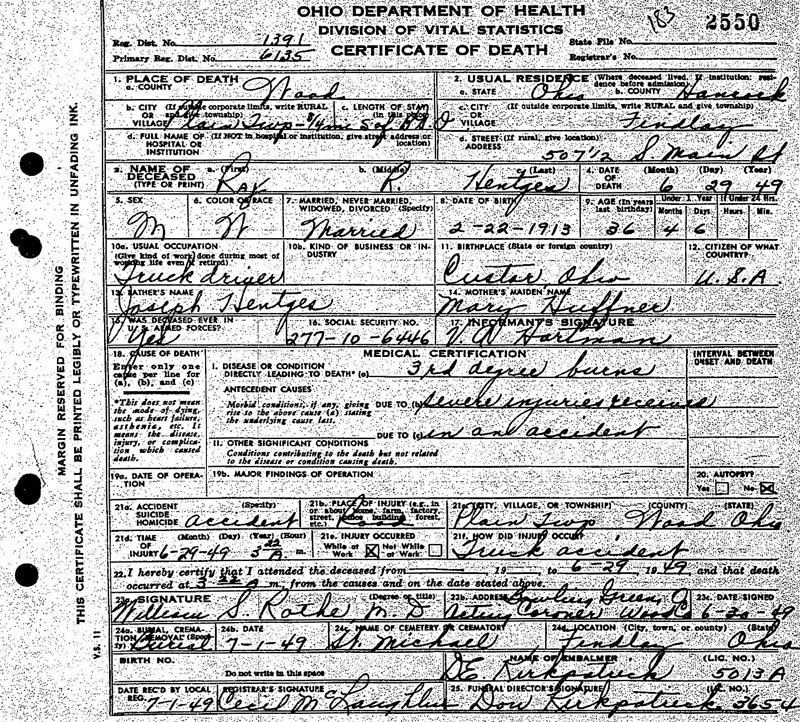 OHIO DEPARTMENT OF HEALTH
DIVISION OF VITAL STATISTICS
CERTIFICATE OF DEATH
183
2550
Reg. Dist. No. 1391
State File No.
Primary Reg. Dist. No. 6135
Registrar's No.
MARGIN RESERVED FOR BINDING
THIS CERTIFICATE SHALL BE PRINTED LEGIBLY OR TYPEWRITTEN IN UNFADING INK.
V.S. 11
1. PLACE OF DEATH
a. COUNTY Wood
2. USUAL RESIDENCE (Where deceased lived. If institution: residence before admission)
a. STATE Ohio b. COUNTY Hancock
b. CITY (If outside corporate limits, write RURAL and give township)
VILLAGE Plain Twp - 3/4 mi S of
c. LENGTH OF STAY (in this place)
c. CITY (If outside corporate limits, write RURAL and give township)
VILLAGE Findlay
d. FULL NAME OF (If NOT in hospital or institution, give street address or location)
HOSPITAL OR INSTITUTION
d. STREET (If rural, give location)
ADDRESS 507 1/2 S. Main St
3. NAME OF DECEASED (TYPE OR PRINT)
a. (First) Ray
b. (Middle) R.
c. (Last) Hentges
4. DATE OF DEATH (Month) (Day) (Year) 6 29 49
5. SEX M
6. COLOR OR RACE W
7. MARRIED, NEVER MARRIED, WIDOWED, DIVORCED (Specify) Married
8. DATE OF BIRTH 2-22-1913
9. AGE (In years last birthday) 36
Under 1 Year Months 4 Days 6
If Under 24 Hrs. Hours Min.
10a. USUAL OCCUPATION (Give kind of work done during most of working life even if retired) Truck driver
10b. KIND OF BUSINESS OR INDUSTRY
11. BIRTHPLACE (State or foreign country) Custar Ohio
12. CITIZEN OF WHAT COUNTRY? U.S.A.
13. FATHER'S NAME Joseph Hentges
14. MOTHER'S MAIDEN NAME Mary Huffner
15. WAS DECEASED EVER IN U. S. ARMED FORCES? Yes
16. SOCIAL SECURITY NO. 277-10-6446
17. INFORMANT'S SIGNATURE V. A. Hartman
18. CAUSE OF DEATH
Enter only one cause per line for (a), (b), and (c)
*This does not mean the mode of dying, such as heart failure, asthenia, etc. It means the disease, injury, or complication which caused death.
MEDICAL CERTIFICATION
INTERVAL BETWEEN ONSET AND DEATH
I. DISEASE OR CONDITION DIRECTLY LEADING TO DEATH* (a) 3rd degree burns
ANTECEDENT CAUSES
Morbid conditions, if any, giving rise to the above cause (a) stating the underlying cause last.
DUE TO (b) severe injuries received
DUE TO (c) in an accident
II. OTHER SIGNIFICANT CONDITIONS
Conditions contributing to the death but not related to the disease or condition causing death.
19a. DATE OF OPERATION
19b. MAJOR FINDINGS OF OPERATION
20. AUTOPSY?
Yes No X
21a. ACCIDENT SUICIDE HOMICIDE (Specify) accident
21b. PLACE OF INJURY (e.g., in or about home, farm, factory, street, office building, forest, etc.)
21c. (CITY, VILLAGE, OR TOWNSHIP) (COUNTY) (STATE)
Plain Twp Wood Ohio
21d. TIME OF INJURY (Month) (Day) (Year) (Hour) 6-29-49 3 22 A. m.
21e. INJURY OCCURRED
While at Work X Not While at Work
21f. HOW DID INJURY OCCUR? Truck accident
22. I hereby certify that I attended the deceased from 19 to 6-29 1949 and that death
occurred at 3 22 A m., from the causes and on the date stated above.
23a. SIGNATURE (Degree or title) William S. Rothe M.D
23b. ADDRESS Bowling Green, O
Acting Coroner Wood Co
23c. DATE SIGNED 6-30-49
24a. BURIAL, CREMATION REMOVAL (Specify) Burial
24b. DATE 7-1-49
24c. NAME OF CEMETERY OR CREMATORY St. Michael
24d. LOCATION (City, town, or county) (State) Findlay Ohio
BIRTH NO.
Do not write in this space
NAME OF EMBALMER (LIC. NO.)
D E Kirkpatrick 5013 A
DATE REC'D BY LOCAL REG. 7-1-49
REGISTRAR'S SIGNATURE Cecil McLaughlin
25. FUNERAL DIRECTOR'S SIGNATURE (LIC. NO.)
Don Kirkpatrick 3654